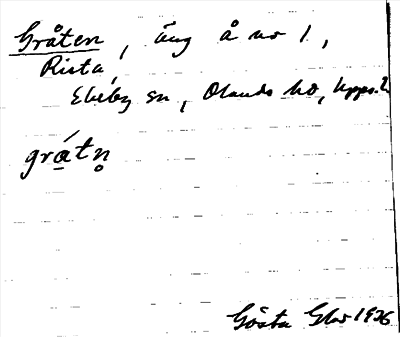 Gråten, äng å no 1,
Rista,
Ekeby sn, Olands hd, Upps. l.
grátn̥
Gösta 1936